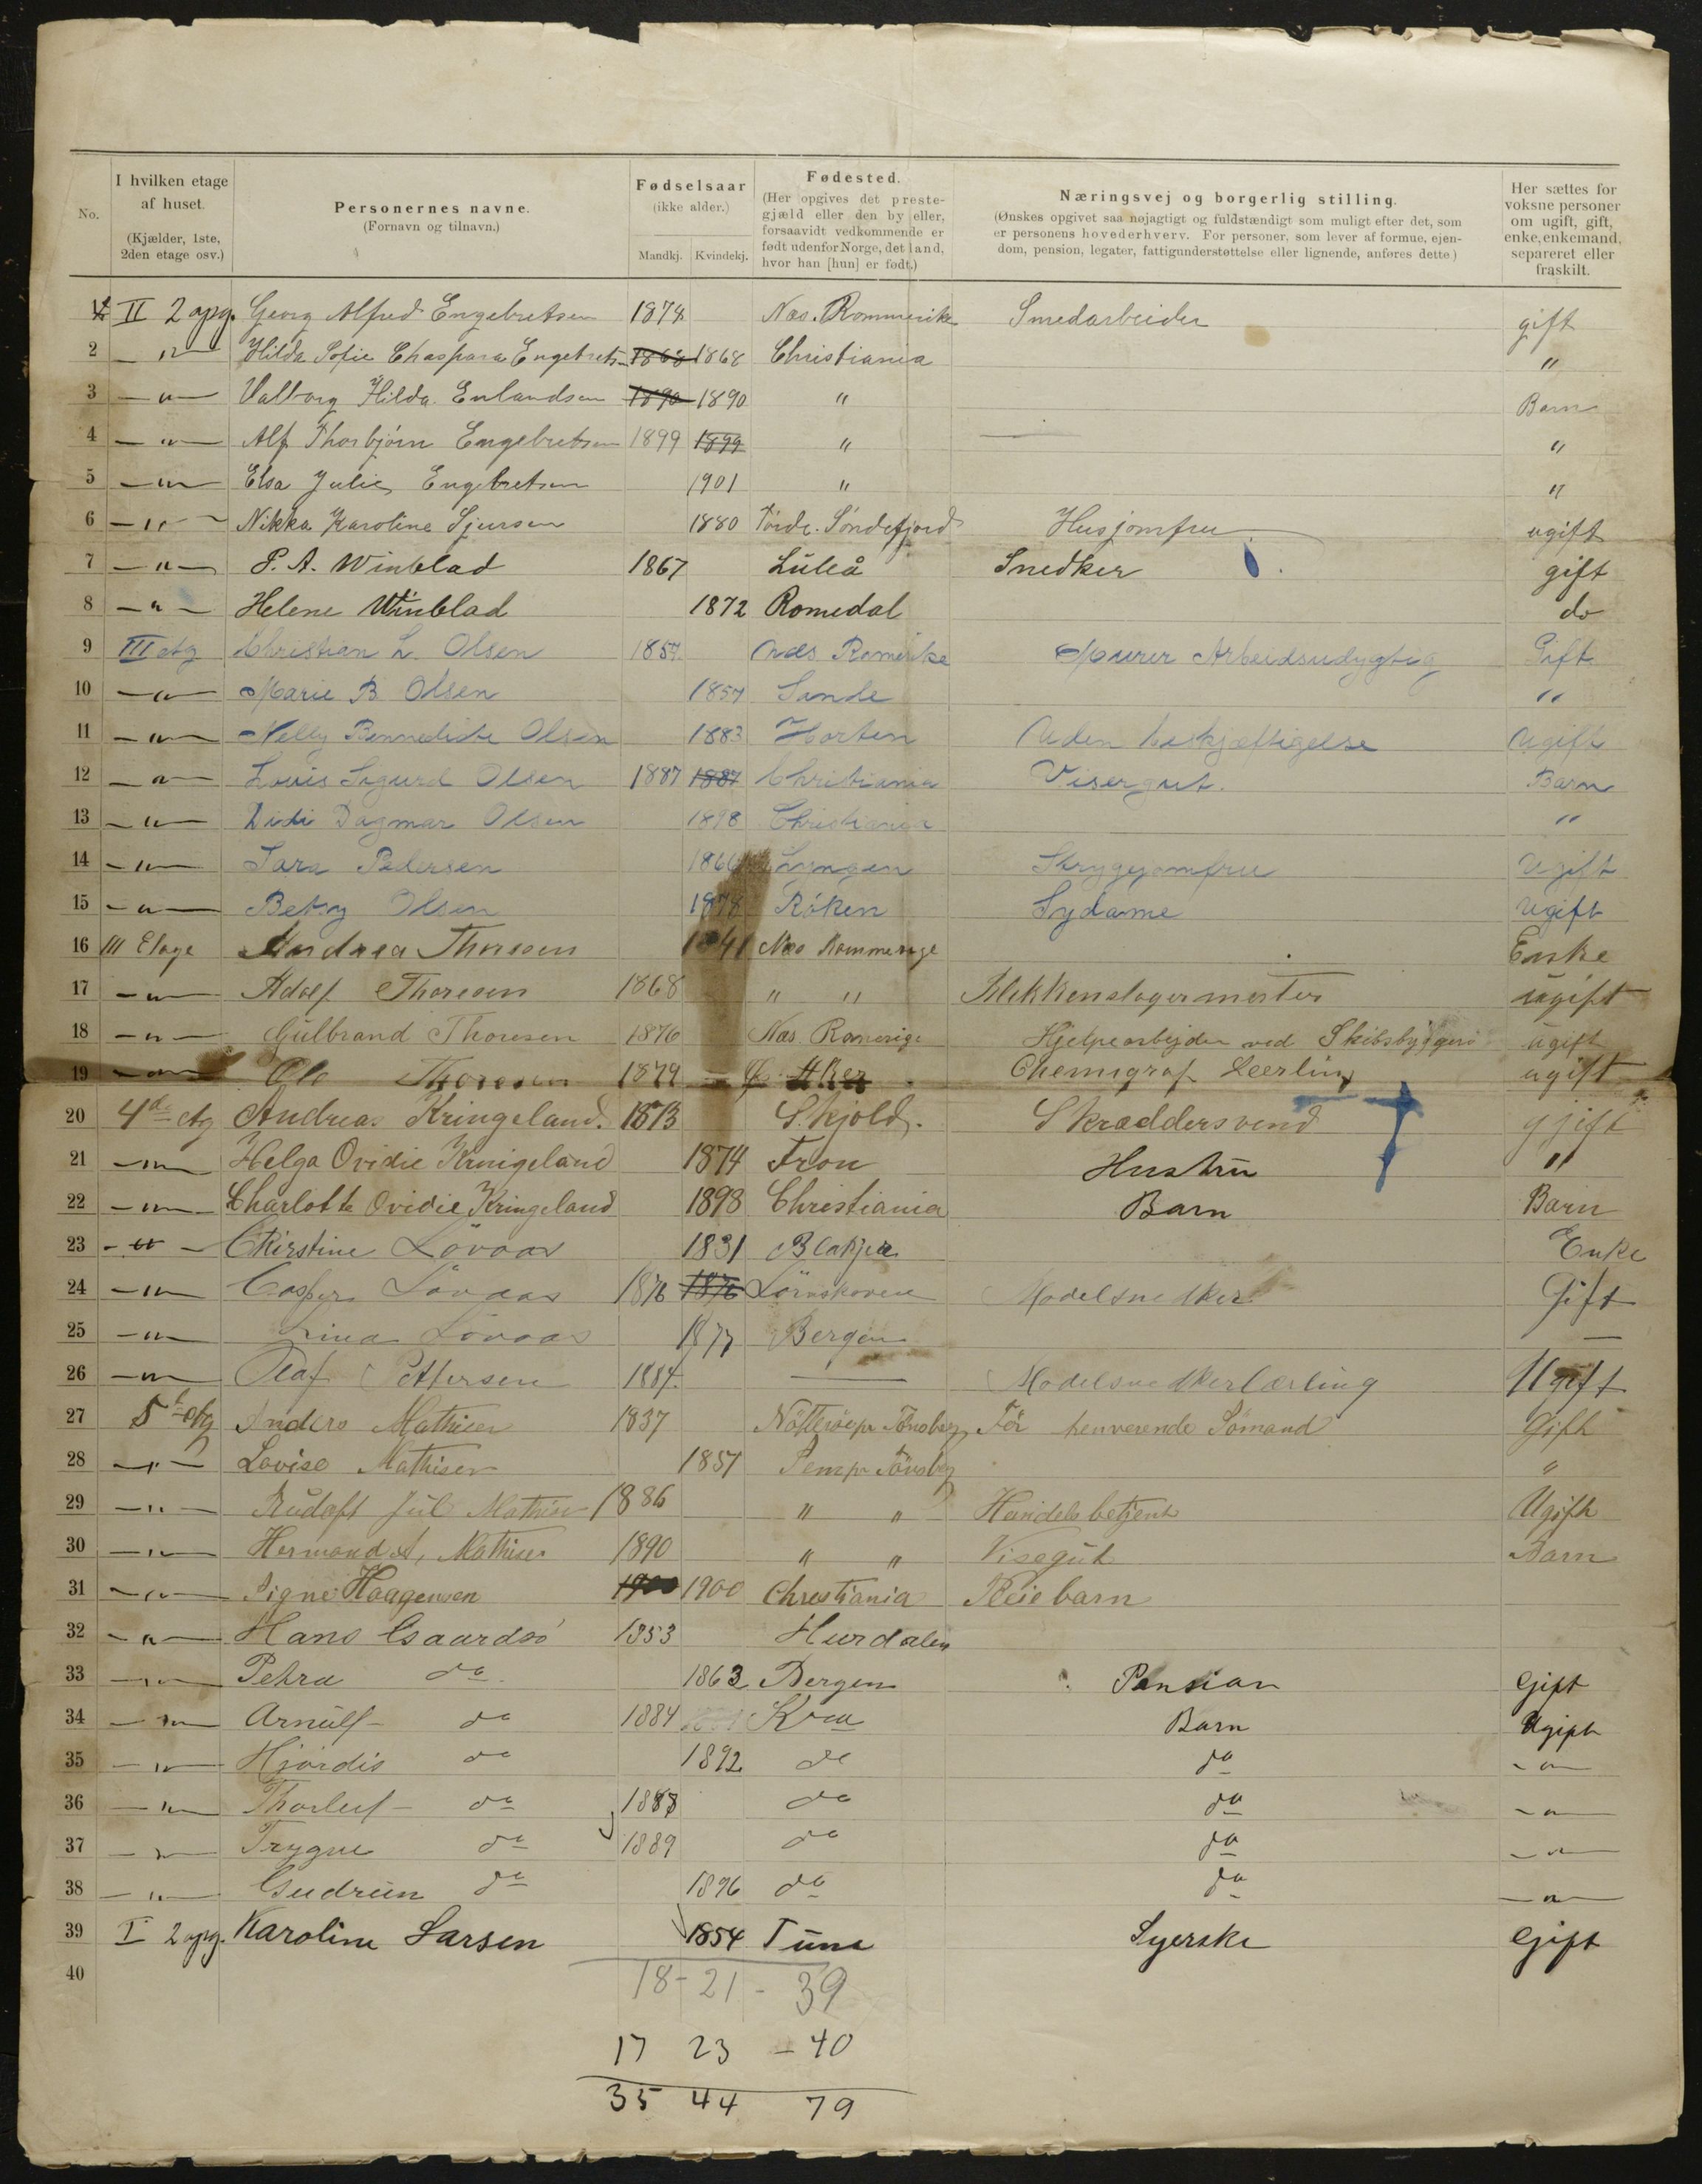 No. | I hvilken etage af huset. (Kjælder, 1ste, 2den etage osv.) | Personernes navne. (Fornavn og tilnavn.) | Fødselsaar (ikke alder.) Mandkj. Kvindekj. | Fødested. (Her opgives det prestegjæld eller den by eller, forsaavidt vedkommende er født udenfor Norge, det land, hvor han [hun] er født.) | Næringsvej og borgerlig stilling. (Ønskes opgivet saa nøjagtigt og fuldstændigt som muligt efter det, som er personens hovederhverv. For personer, som lever af formue, ejendom, pension, legater, fattigunderstøttelse eller lignende, anføres dette.) | Her sættes for voksne personer om ugift, gift, enke, enkemand, separeret eller fraskilt.
II 2 opg. Georg Alfred Engebretsen 1878 Næs. Rommerike Smedarbeider gift
2 — " — Hilda Sofie Engebrets 1868 1868 Christiania "
3 — " — Valborg Hilda Enlandsen 1890 1890 " Barn
4 — " — Alf Thorbjørn Engebretsen 1899 1899 " "
5 — " — Elsa Julie Engebretsen 1901 " "
6 — " — Nikka Karoline Sjursen 1880 Førde. Søndefjord Husjomfru ugift
7 — " — P. A. Winblad 1867 Luleå Snedker gift
8 — " — Helene Winblad 1872 Romedal do
9 III etg Christian L. Olsen 1857 Næs Romerike Murer Arbeidsudygtig Gift
10 — " — Marie B Olsen 1857 Sande "
11 — " — Nelly Bennedikte Olsen 1883 Horten Uden beskjæftigelse Ugift
12 — " — Louis Sigurd Olsen 1887 1887 Christiania Visergut. Barn
13 — " — Didi Dagmar Olsen 1898 Christiania "
14 — " — Sara Pedersen Lyngen Strygejomfru Ugift
15 — " — Betsy Olsen 1878 Røken Sydame Ugift
16 III Etage Andrea Thoresen 1841 Næs Rommerige Enke
17 — " — Adolf Thoresen 1868 " " Blikkenslagermester ugift
18 — " — Gulbrand Thoresen 1876 Næs Romerige Hjelpearbejder ved Skibsbyggeri ugift
19 — " — Ole Thoresen 1879 Aker Chemigraf Leerling ugift
20 4de etg Andreas Kringeland. 1873 Skjold. Skræddersvend gjift
21 — " — Helga Ovidie Kringeland 1874 Fron Hustru "
22 — " — Charlotte Ovidie Kringeland 1898 Christiania Barn Barn
23 — " — Kirstine Løvaas 1831 Blakjer Enke
24 — " — Casper Løvaas 1876 1876 Lørnskoven Modelsnedker Gift
25 — " — Lina Løvaas 1877 Bergen —
26 — " — Olaf Pettersen 1884. — Modelsnedkerlærling Ugift
27 5te etg Anders Mathisen 1837 Nøtterøe pr Tønsberg Før henværende Sømand Gift
28 — " — Lovise Mathisen 1857 Sem pr Tønsberg "
29 — " — Rudolf Jul Mathisen 1886 " " Handelsbetjent Ugift
30 — " — Hermand A, Mathisen 1890 " " Visegut Barn
31 — " — Signe Haagensen 1900 1900 Christiania Pleiebarn
32 — " — Hans Gaardsø 1853 Hurdalen
33 — " — Petra do 1863 Bergen Pension Gift
34 — " — Arnulf do 1884 Kra Barn Ugift
35 — " — Hjørdis do 1892 do do — " —
36 — " — Thorleif do 1887 do do — " —
37 — " — Trygve do 1889 do do — " —
38 — " — Gudrun do 1896 do do — " —
39 I 2 opg. Karoline Larsen 1854 Tune Syerske Gift
40
18 - 21 - 39
17 23 - 40
35 44 79